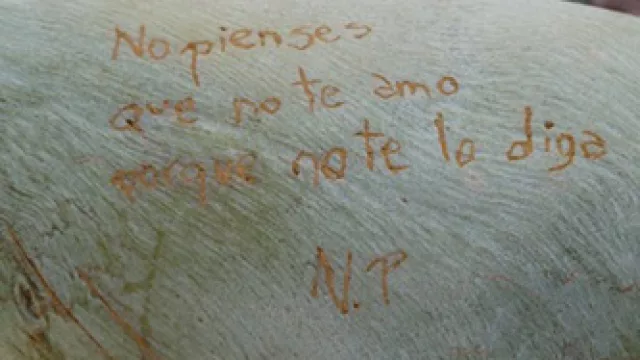 No pienses
que no te amo
porque no te lo diga
N.P